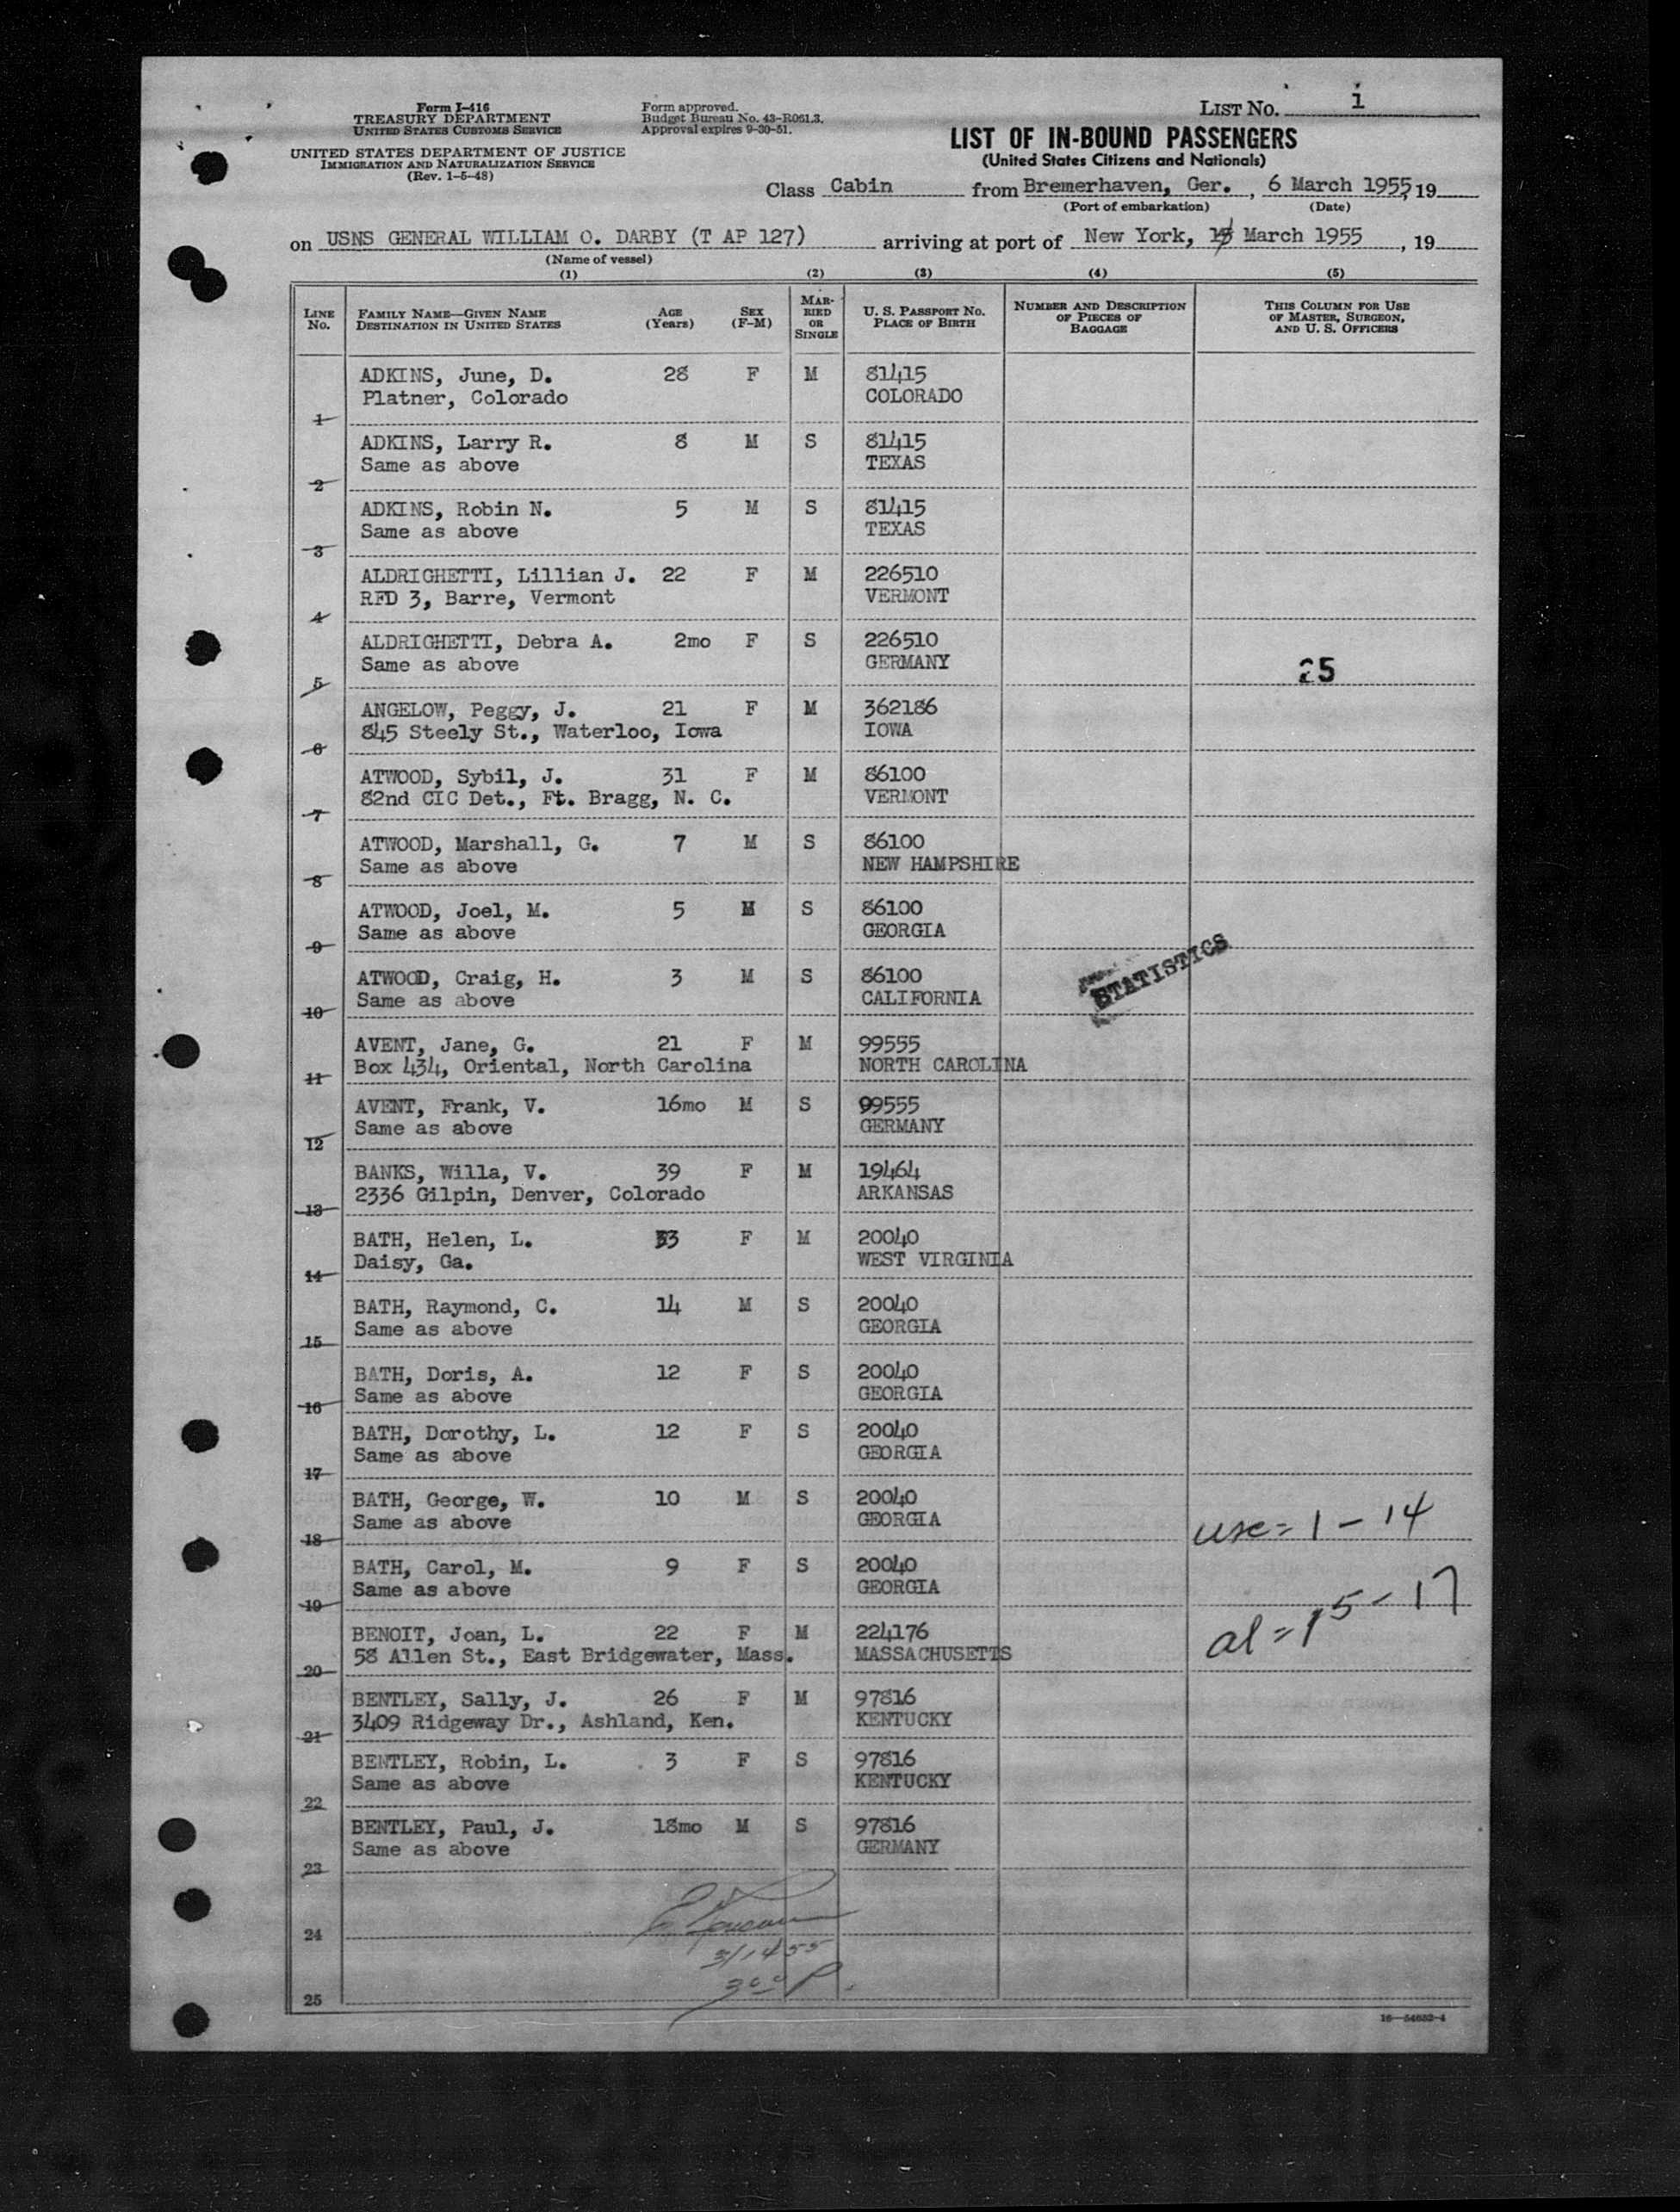 Form I-416
TREASURY DEPARTMENT
UNITED STATES CUSTOMS SERVICE
UNITED STATES DEPARTMENT OF JUSTICE
IMMIGRATION AND NATURALIZATION SERVICE
(Rev. 1-5-48)
Form approved.
Budget Bureau No. 43-R061.3.
Approval expires 9-30-51.
LIST No. i
LIST OF IN-BOUND PASSENGERS
(United States Citizens and Nationals)
Class Cabin from Bremerhaven, Ger., 6 March 1955, 19
(Port of embarkation) (Date)
on USNS GENERAL WILLIAM O. DARBY (T AP 127) arriving at port of New York, March 1955, 19
(Name of vessel)
(1) (2) (3) (4) (5)
LINE No. FAMILY NAME—GIVEN NAME DESTINATION IN UNITED STATES AGE (Years) SEX (F-M) MARRIED OR SINGLE U. S. PASSPORT No. PLACE OF BIRTH NUMBER AND DESCRIPTION OF PIECES OF BAGGAGE THIS COLUMN FOR USE OF MASTER, SURGEON, AND U. S. OFFICERS
ADKINS, June, D. 28 F M 81415
Platner, Colorado COLORADO
1
ADKINS, Larry R. 8 M S 81415
Same as above TEXAS
2
ADKINS, Robin N. 5 M S 81415
Same as above TEXAS
3
ALDRIGHETTI, Lillian J. 22 F M 226510
RFD 3, Barre, Vermont VERMONT
4
ALDRIGHETTI, Debra A. 2mo F S 226510
Same as above GERMANY 25
5
ANGELOW, Peggy, J. 21 F M 362186
845 Steely St., Waterloo, Iowa IOWA
6
ATWOOD, Sybil, J. 31 F M 86100
82nd CIC Det., Ft. Bragg, N. C. VERMONT
7
ATWOOD, Marshall, G. 7 M S 86100
Same as above NEW HAMPSHIRE
8
ATWOOD, Joel, M. 5 M S 86100
Same as above GEORGIA
9
STATISTICS
ATWOOD, Craig, H. 3 M S 86100
Same as above CALIFORNIA
10
AVENT, Jane, G. 21 F M 99555
Box 434, Oriental, North Carolina NORTH CAROLINA
11
AVENT, Frank, V. 16mo M S 99555
Same as above GERMANY
12
BANKS, Willa, V. 39 F M 19464
2336 Gilpin, Denver, Colorado ARKANSAS
13
BATH, Helen, L. 33 F M 20040
Daisy, Ga. WEST VIRGINIA
14
BATH, Raymond, C. 14 M S 20040
Same as above GEORGIA
15
BATH, Doris, A. 12 F S 20040
Same as above GEORGIA
16
BATH, Dorothy, L. 12 F S 20040
Same as above GEORGIA
17
BATH, George, W. 10 M S 20040
Same as above GEORGIA usc = 1 - 14
18
BATH, Carol, M. 9 F S 20040
Same as above GEORGIA
19
al = 15 - 17
BENOIT, Joan, L. 22 F M 224176
58 Allen St., East Bridgewater, Mass. MASSACHUSETTS
20
BENTLEY, Sally, J. 26 F M 97816
3409 Ridgeway Dr., Ashland, Ken. KENTUCKY
21
BENTLEY, Robin, L. 3 F S 97816
Same as above KENTUCKY
22
BENTLEY, Paul, J. 18mo M S 97816
Same as above GERMANY
23
24
3/14 55
25
16—54652-4